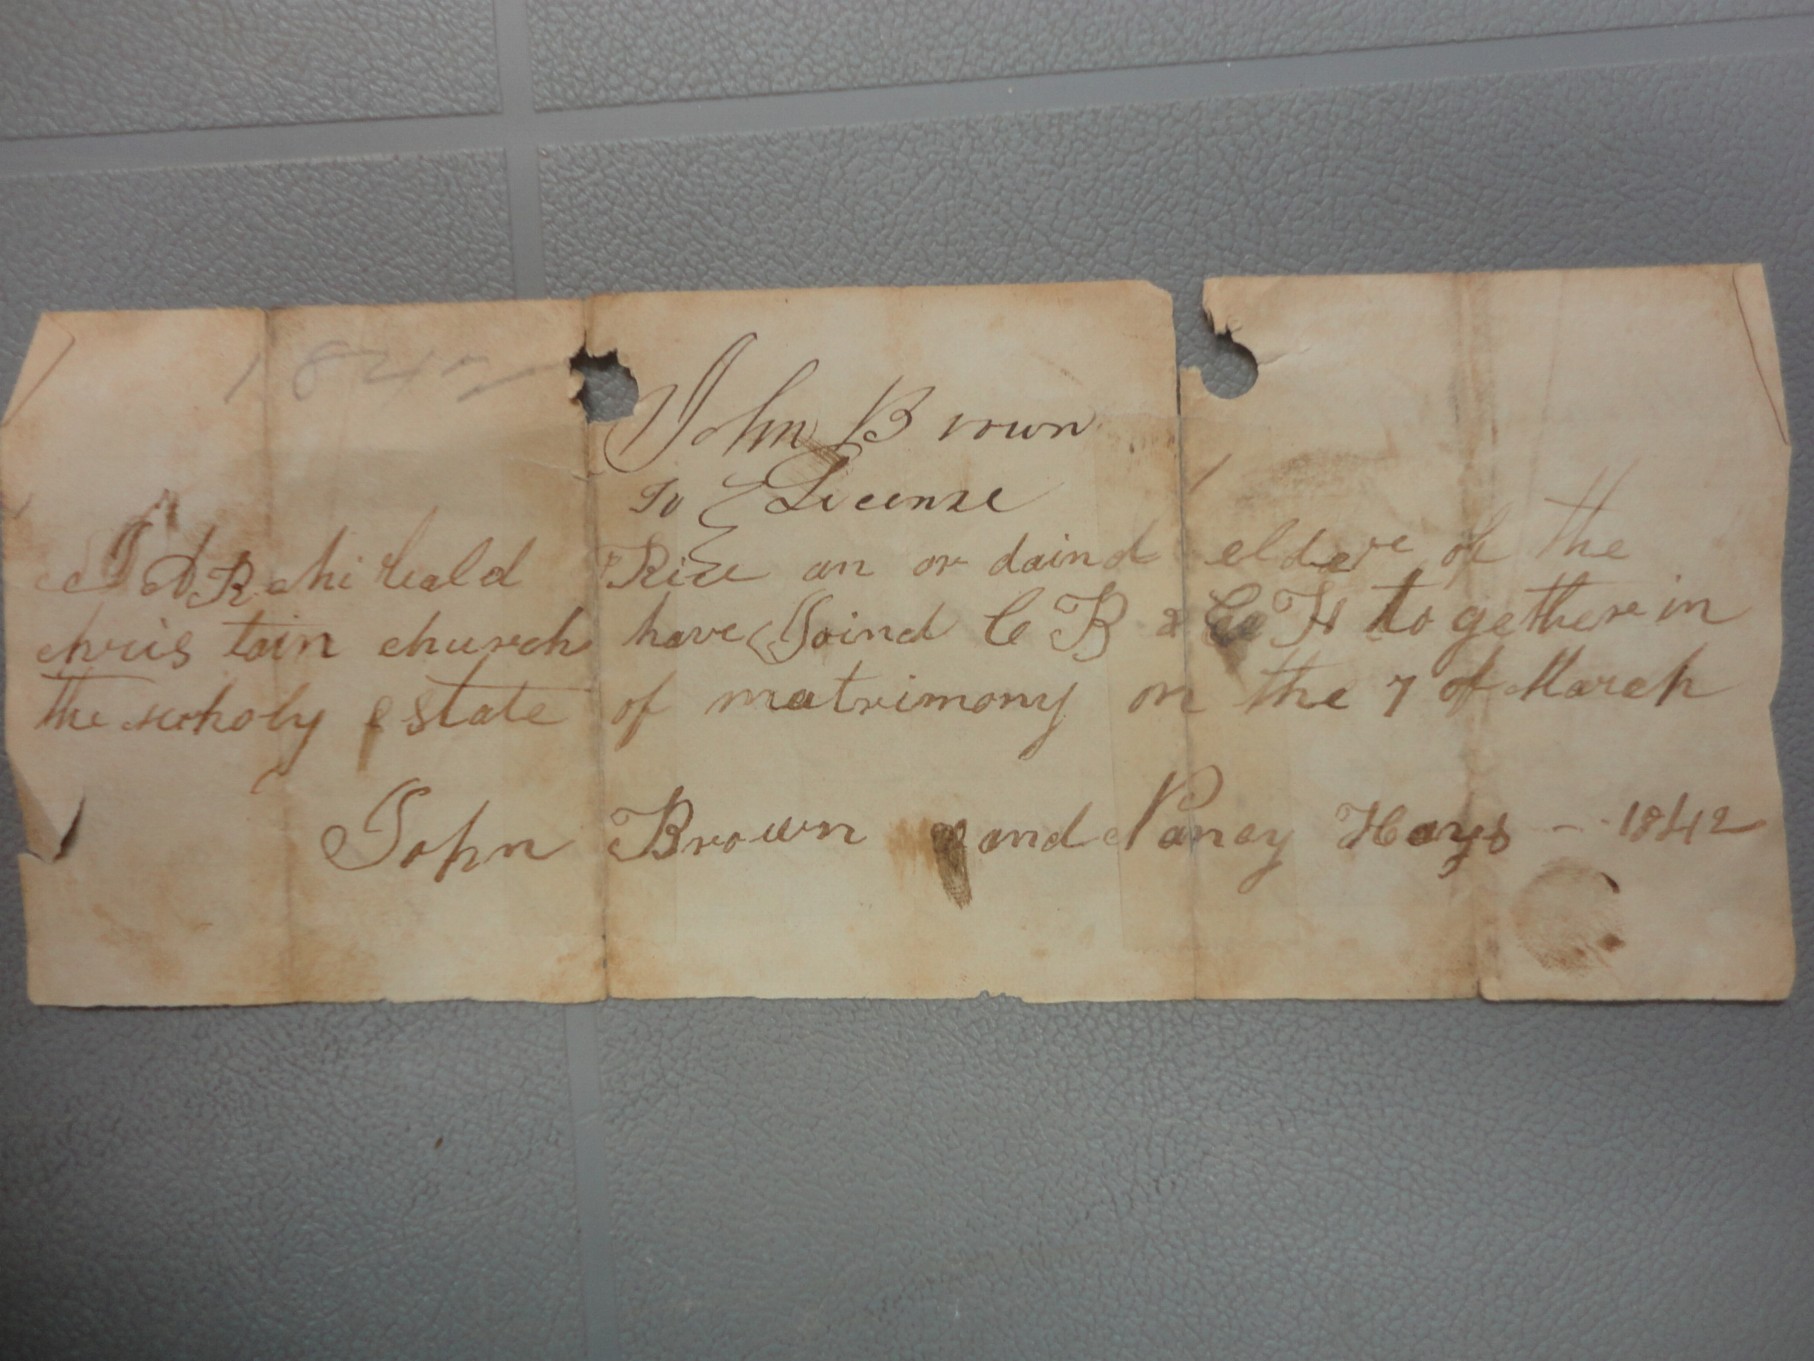 1842
John Brown
To License
I ARchibald Rice an or daind elder of the
chris tain church have Joind C B & C H to gether in
the holy estate of matrimony on the 7 of March
John Brown and Nancy Hays - 1842